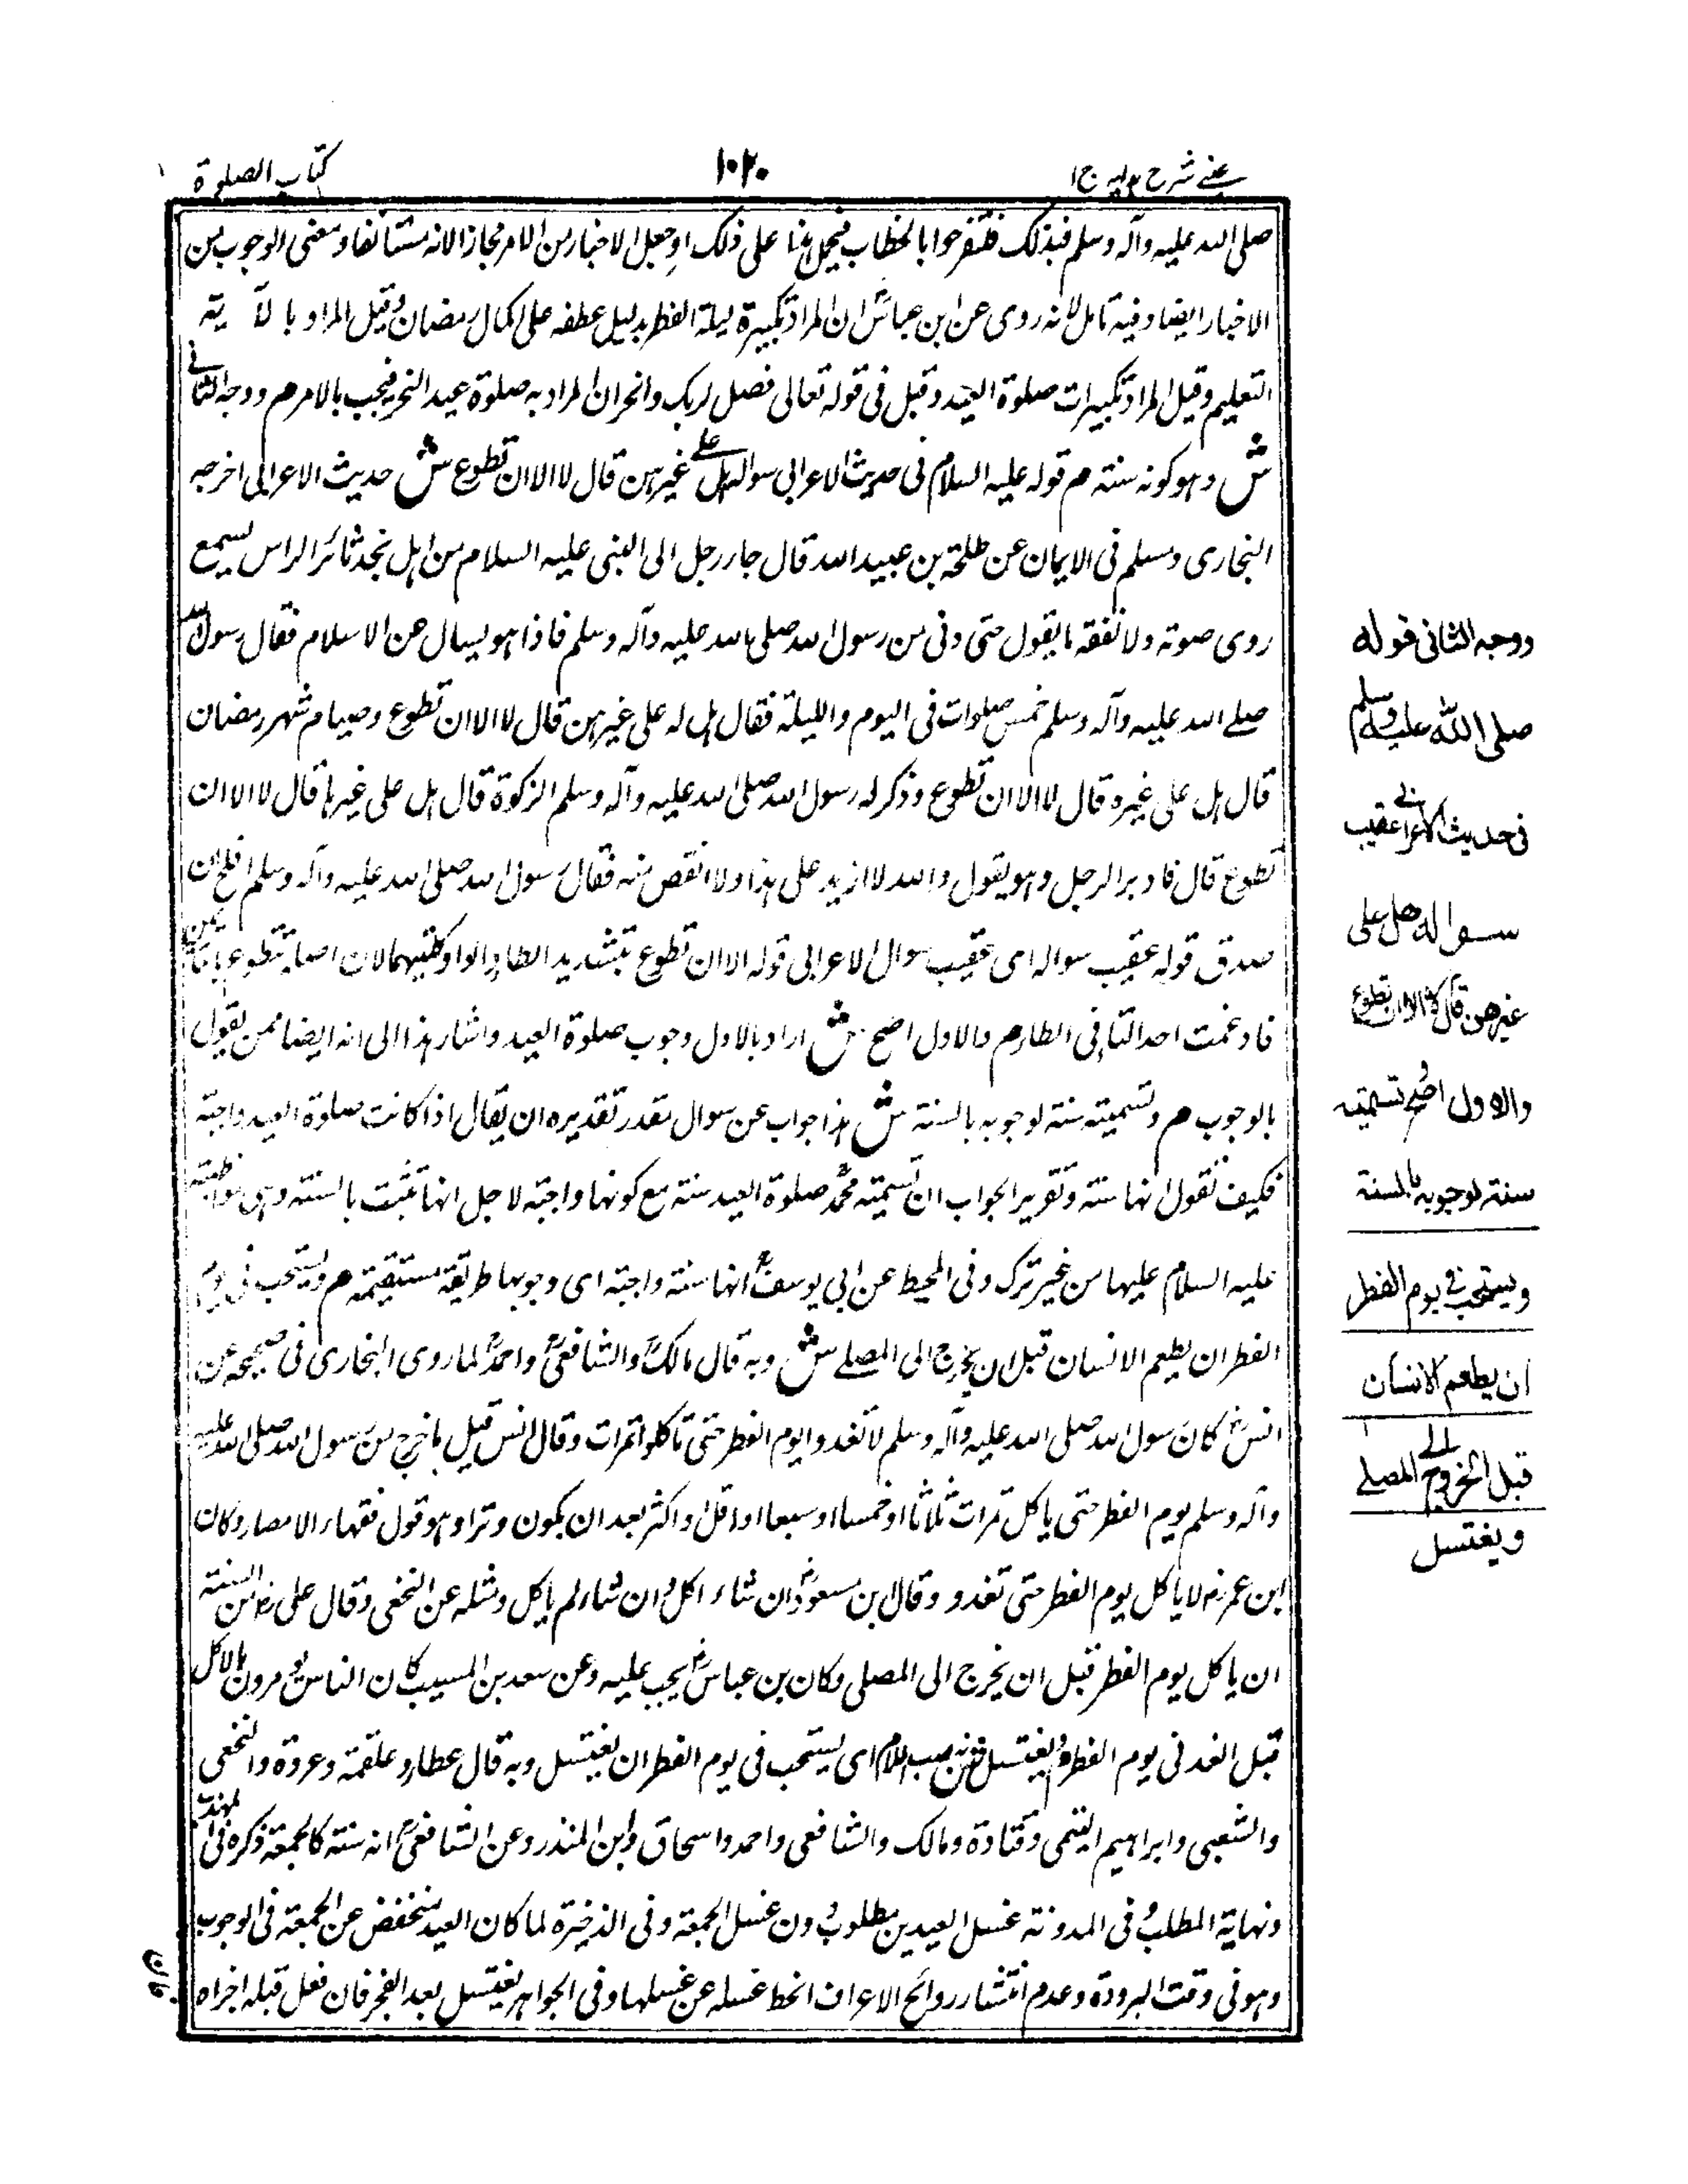 عینی شرح ہدایہ ج۱
۱۰۲۰
کتاب الصلوة
صلى الله عليه وآله وسلم فبذلك فلتفرحوا بالخطاب فيحمل هذا على ذلك او جعل الاخبار من الامر مجازا لانه مستانفا ومعنى الوجوب من
الاخبار ايضا وفيه تامل لانه روى عن ابن عباس ان المراد تكبيرة ليلة الفطر بدليل عطفه على اكمال رمضان وقيل المراد بالآية
التعليم وقيل المراد تكبيرات صلوة العيد وقيل فى قوله تعالى فصل لربك وانحر ان المراد به صلوة عيد النحر فيجب بالامر م ووجه الثانى
ش وهو كونه سنة م قوله عليه السلام فى حديث الاعرابى سواله هل على غيرهن قال لا الا ان تطوع ش حديث الاعرابى اخرجه
البخارى ومسلم فى الايمان عن طلحة بن عبيد الله قال جاء رجل الى النبى عليه السلام من اهل نجد ثائر الراس يسمع
روى صوته ولا نفقه ما يقول حتى دنى من رسول الله صلى الله عليه وآله وسلم فاذا هو يسال عن الاسلام فقال رسول الله
صلے الله عليه وآله وسلم خمس صلوات فى اليوم والليلة فقال هل له على غيرهن قال لا الا ان تطوع وصيام شهر رمضان
قال هل على غيره قال لا الا ان تطوع وذكر له رسول الله صلى الله عليه وآله وسلم الزكوة قال هل على غيرها قال لا الا ان
تطوع قال فادبر الرجل وهو يقول والله لا ازيد على هذا ولا انقص منه فقال رسول الله صلى الله عليه وآله وسلم افلح ان
صدق قوله عقيب سواله اى عقيب سوال الاعرابى قوله الا ان تطوع بتشديد الطاء والواو كلتيهما لان اصله تتطوع بتائين
فادغمت احد التاء فى الطاء م والاول اصح ش اراد بالاول وجوب صلوة العيد واشار بهذا الى انه ايضا ممن يقول
بالوجوب م وتسميته سنة لوجوبه بالسنة ش هذا جواب عن سوال مقدر تقديره ان يقال اذا كانت صلوة العيد واجبة
فكيف نقول انها سنة وتقرير الجواب ان تسميته محمدؒ صلوة العيد سنة مع كونها واجبة لاجل انها تثبت بالسنة وهى مواظبته
عليه السلام عليها من غير ترك وفى المحيط عن ابى يوسفؒ انها سنة واجبة اى وجوبها طريقة مستقيمة م ويستحب فى يوم
الفطر ان يطعم الانسان قبل ان يخرج الى المصلے ش وبه قال مالكؒ والشافعىؒ واحمدؒ لما روى البخارى فى صحيحه عن
انسؓ كان رسول الله صلى الله عليه وآله وسلم لا تغدوا يوم الفطر حتى تاكلوا تمرات وقال انس قيل ما خرج من رسول الله صلى الله عليه
وآله وسلم يوم الفطر حتى ياكل تمرات ثلاثا او خمسا او سبعا او اقل او اكثر بعد ان يكون وترا وهو قول فقهاء الامصار وكان
ابن عمرؓ لا ياكل يوم الفطر حتى تغدو وقال ابن مسعودؓ ان شاء اكل وان شاء لم ياكل ومثله عن النخعى وقال علىؓ من السنة
ان ياكل يوم الفطر قبل ان يخرج الى المصلى وكان بن عباسؓ يحب عليه وعن سعد بن المسيب كان الناس يومرون بالاكل
قبل الغد فى يوم الفطر م ويغتسل ش بنصب اللام اى يستحب فى يوم الفطر ان يغتسل وبه قال عطاء وعلقمة وعروة والنخعى
والشعبى وابراهيم التيمى وقتادة ومالك والشافعى واحمد واسحاق وابن المنذر وعن الشافعىؒ انه سنة كالجمعة ذكره فى
ونهاية المطلب وفى المدونة غسل العيدين مطلوب دون غسل الجمعة وفى الذخيرة لما كان العيد منخفض عن الجمعة فى الوجوب
وهو فى وقت البرودة وعدم انتشار روائح الاعراف انحط غسله عن غسلها وفى الجواهر يغتسل بعد الفجر فان فعل قبله اجزاه
ووجه الثانى قوله
صلى الله عليه وسلم
فى حديث الاعرابى عقيب
سواله هل على
غيرهن قال لا الا ان تطوع
والاول اصح وتسميته
سنة لوجوبه بالسنة
ويستحب فى يوم الفطر
ان يطعم الانسان
قبل الخروج الى المصلے
ويغتسل